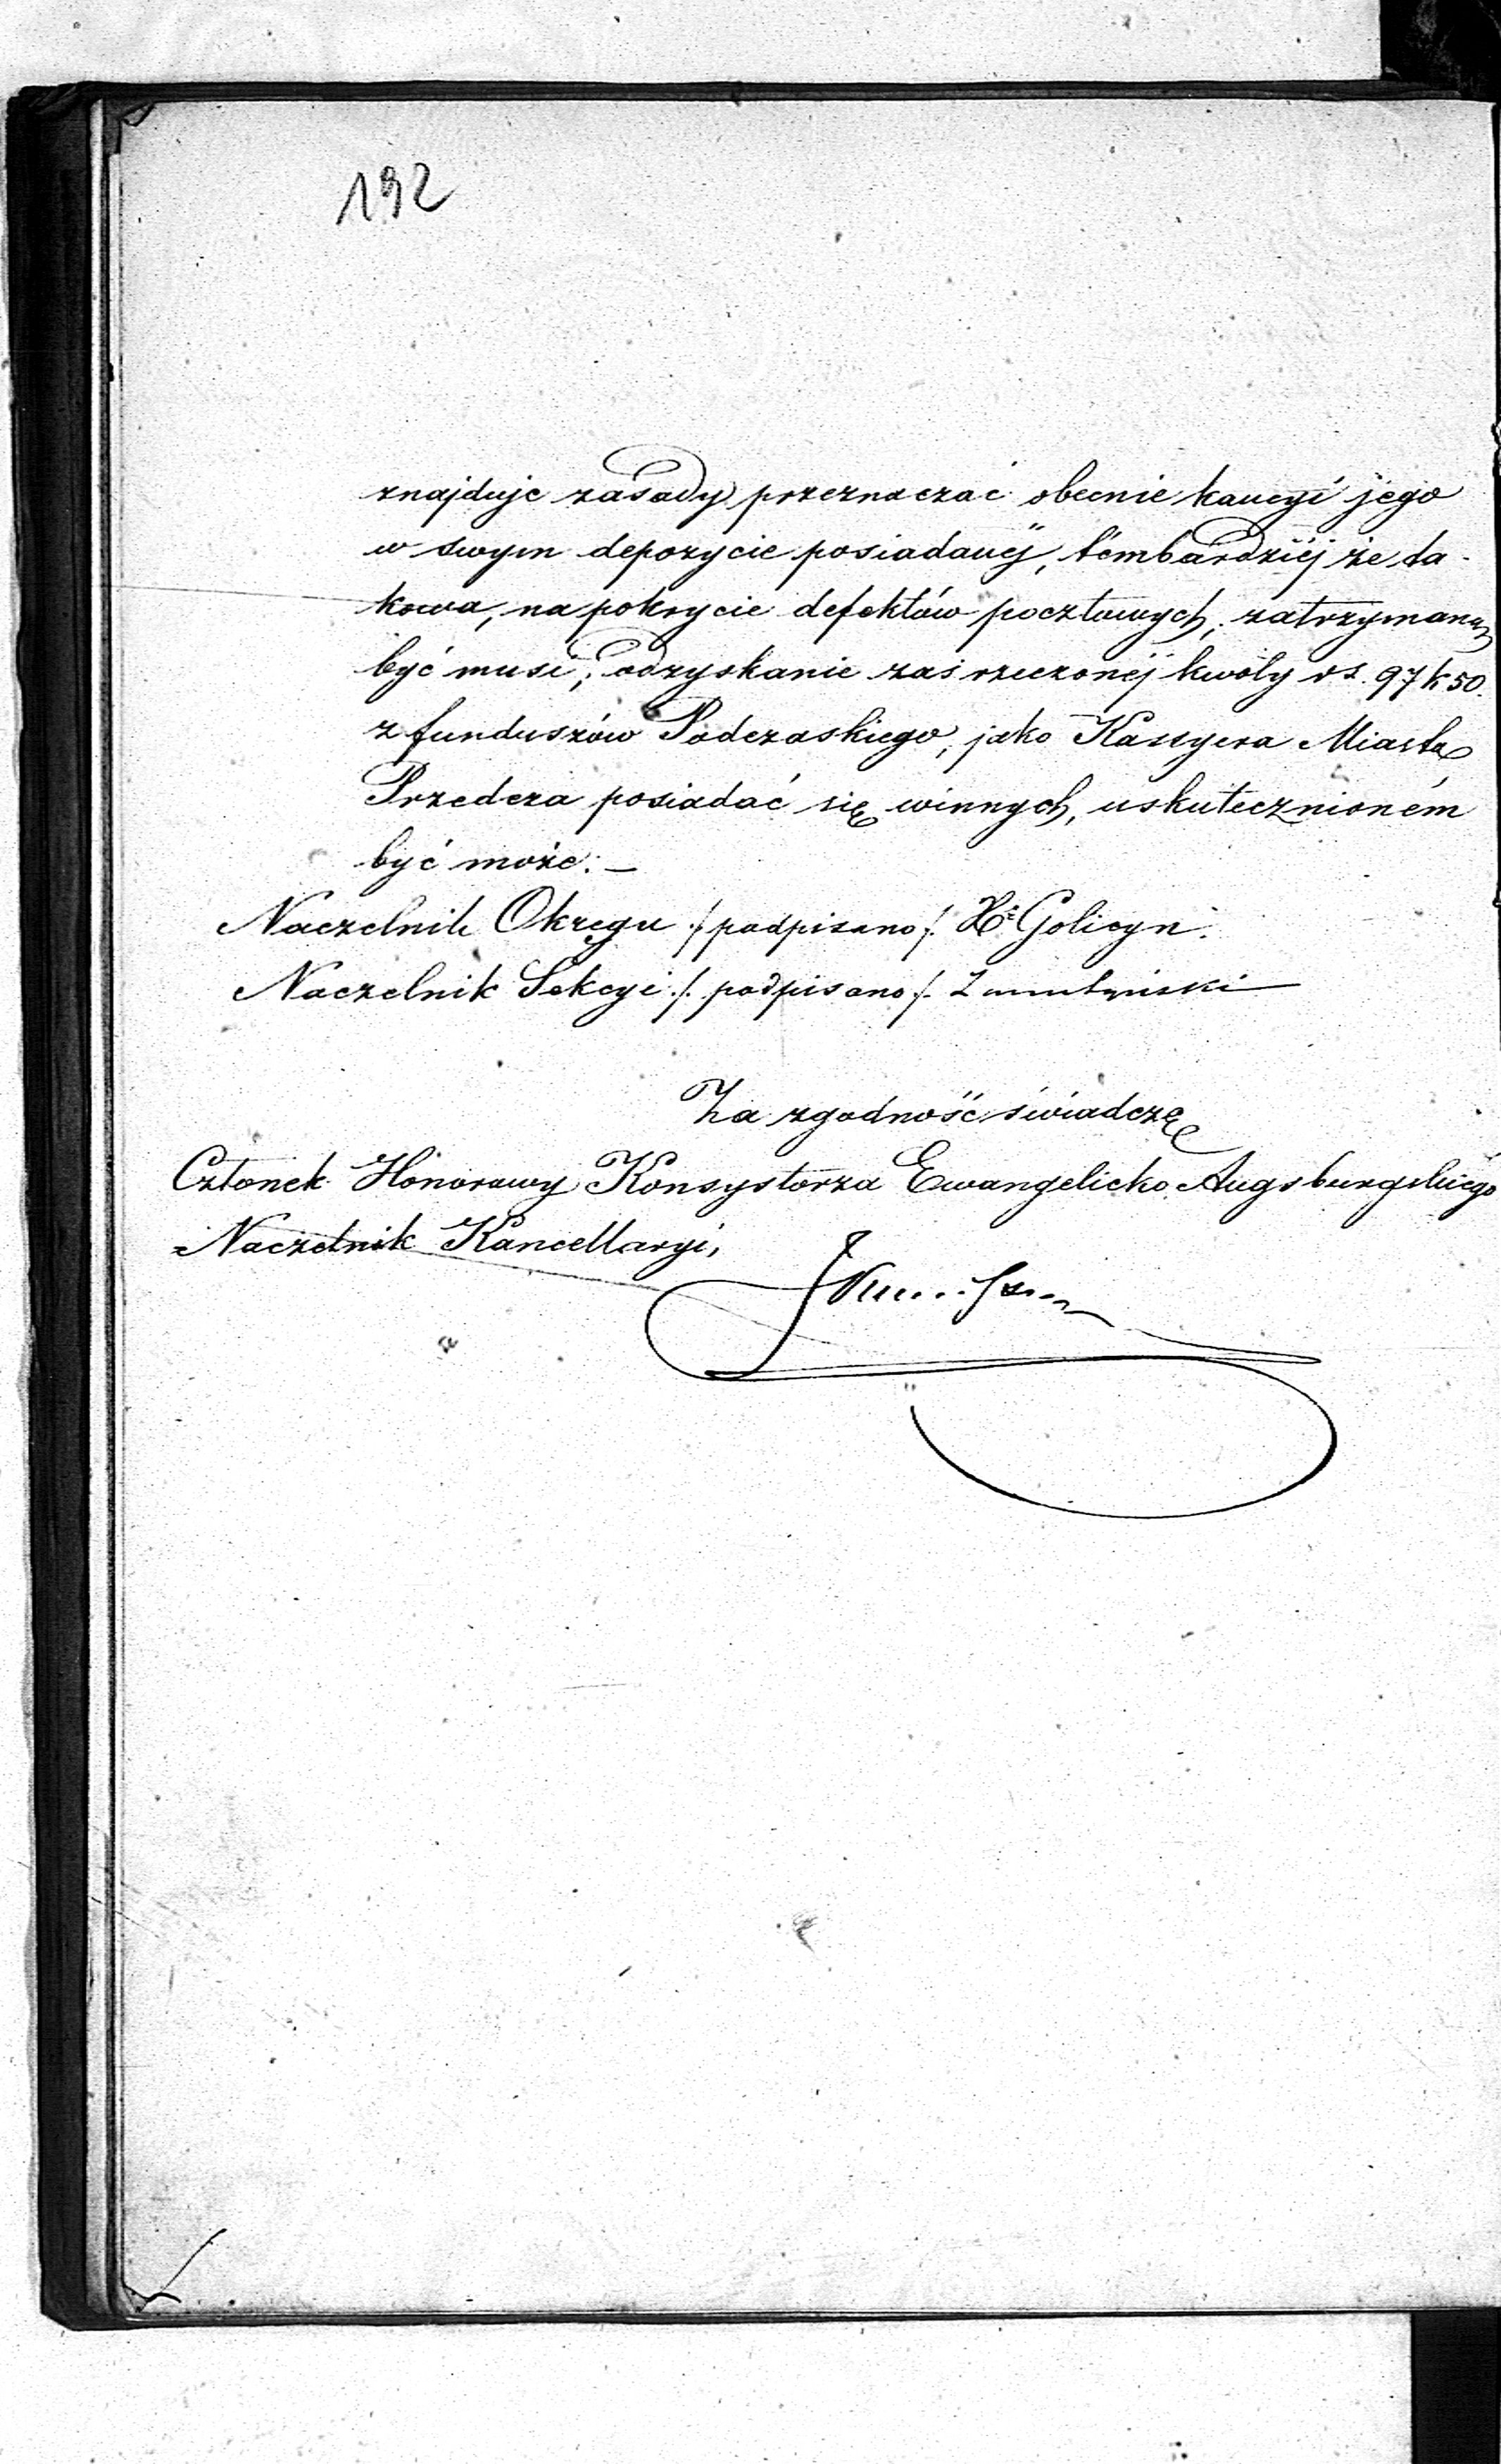 192
znajduje zasady przeznaczać obecnie kaucyi jego
w swym depozycie posiadanéj, témbardziéj że ta-
kowa, na pokrycie defektów pocztowych, zatrzymaną
być musi; odzyskanie zaś rzeczonéj kwoty rs. 97 k 50.
z funduszów Podczaskiego, jako Kassyera Miasta
Przedcza posiadać się winnych, uskutecznioném
być może. —
Naczelnik Okręgu /podpisano/. Xę Golicyn.
Naczelnik Sekcyi /. podpisano /.
Za zgodność świadczę
Członek Honorowy Konsystorza Ewangelicko Augsburgskiego
Naczelnik Kancellaryi,